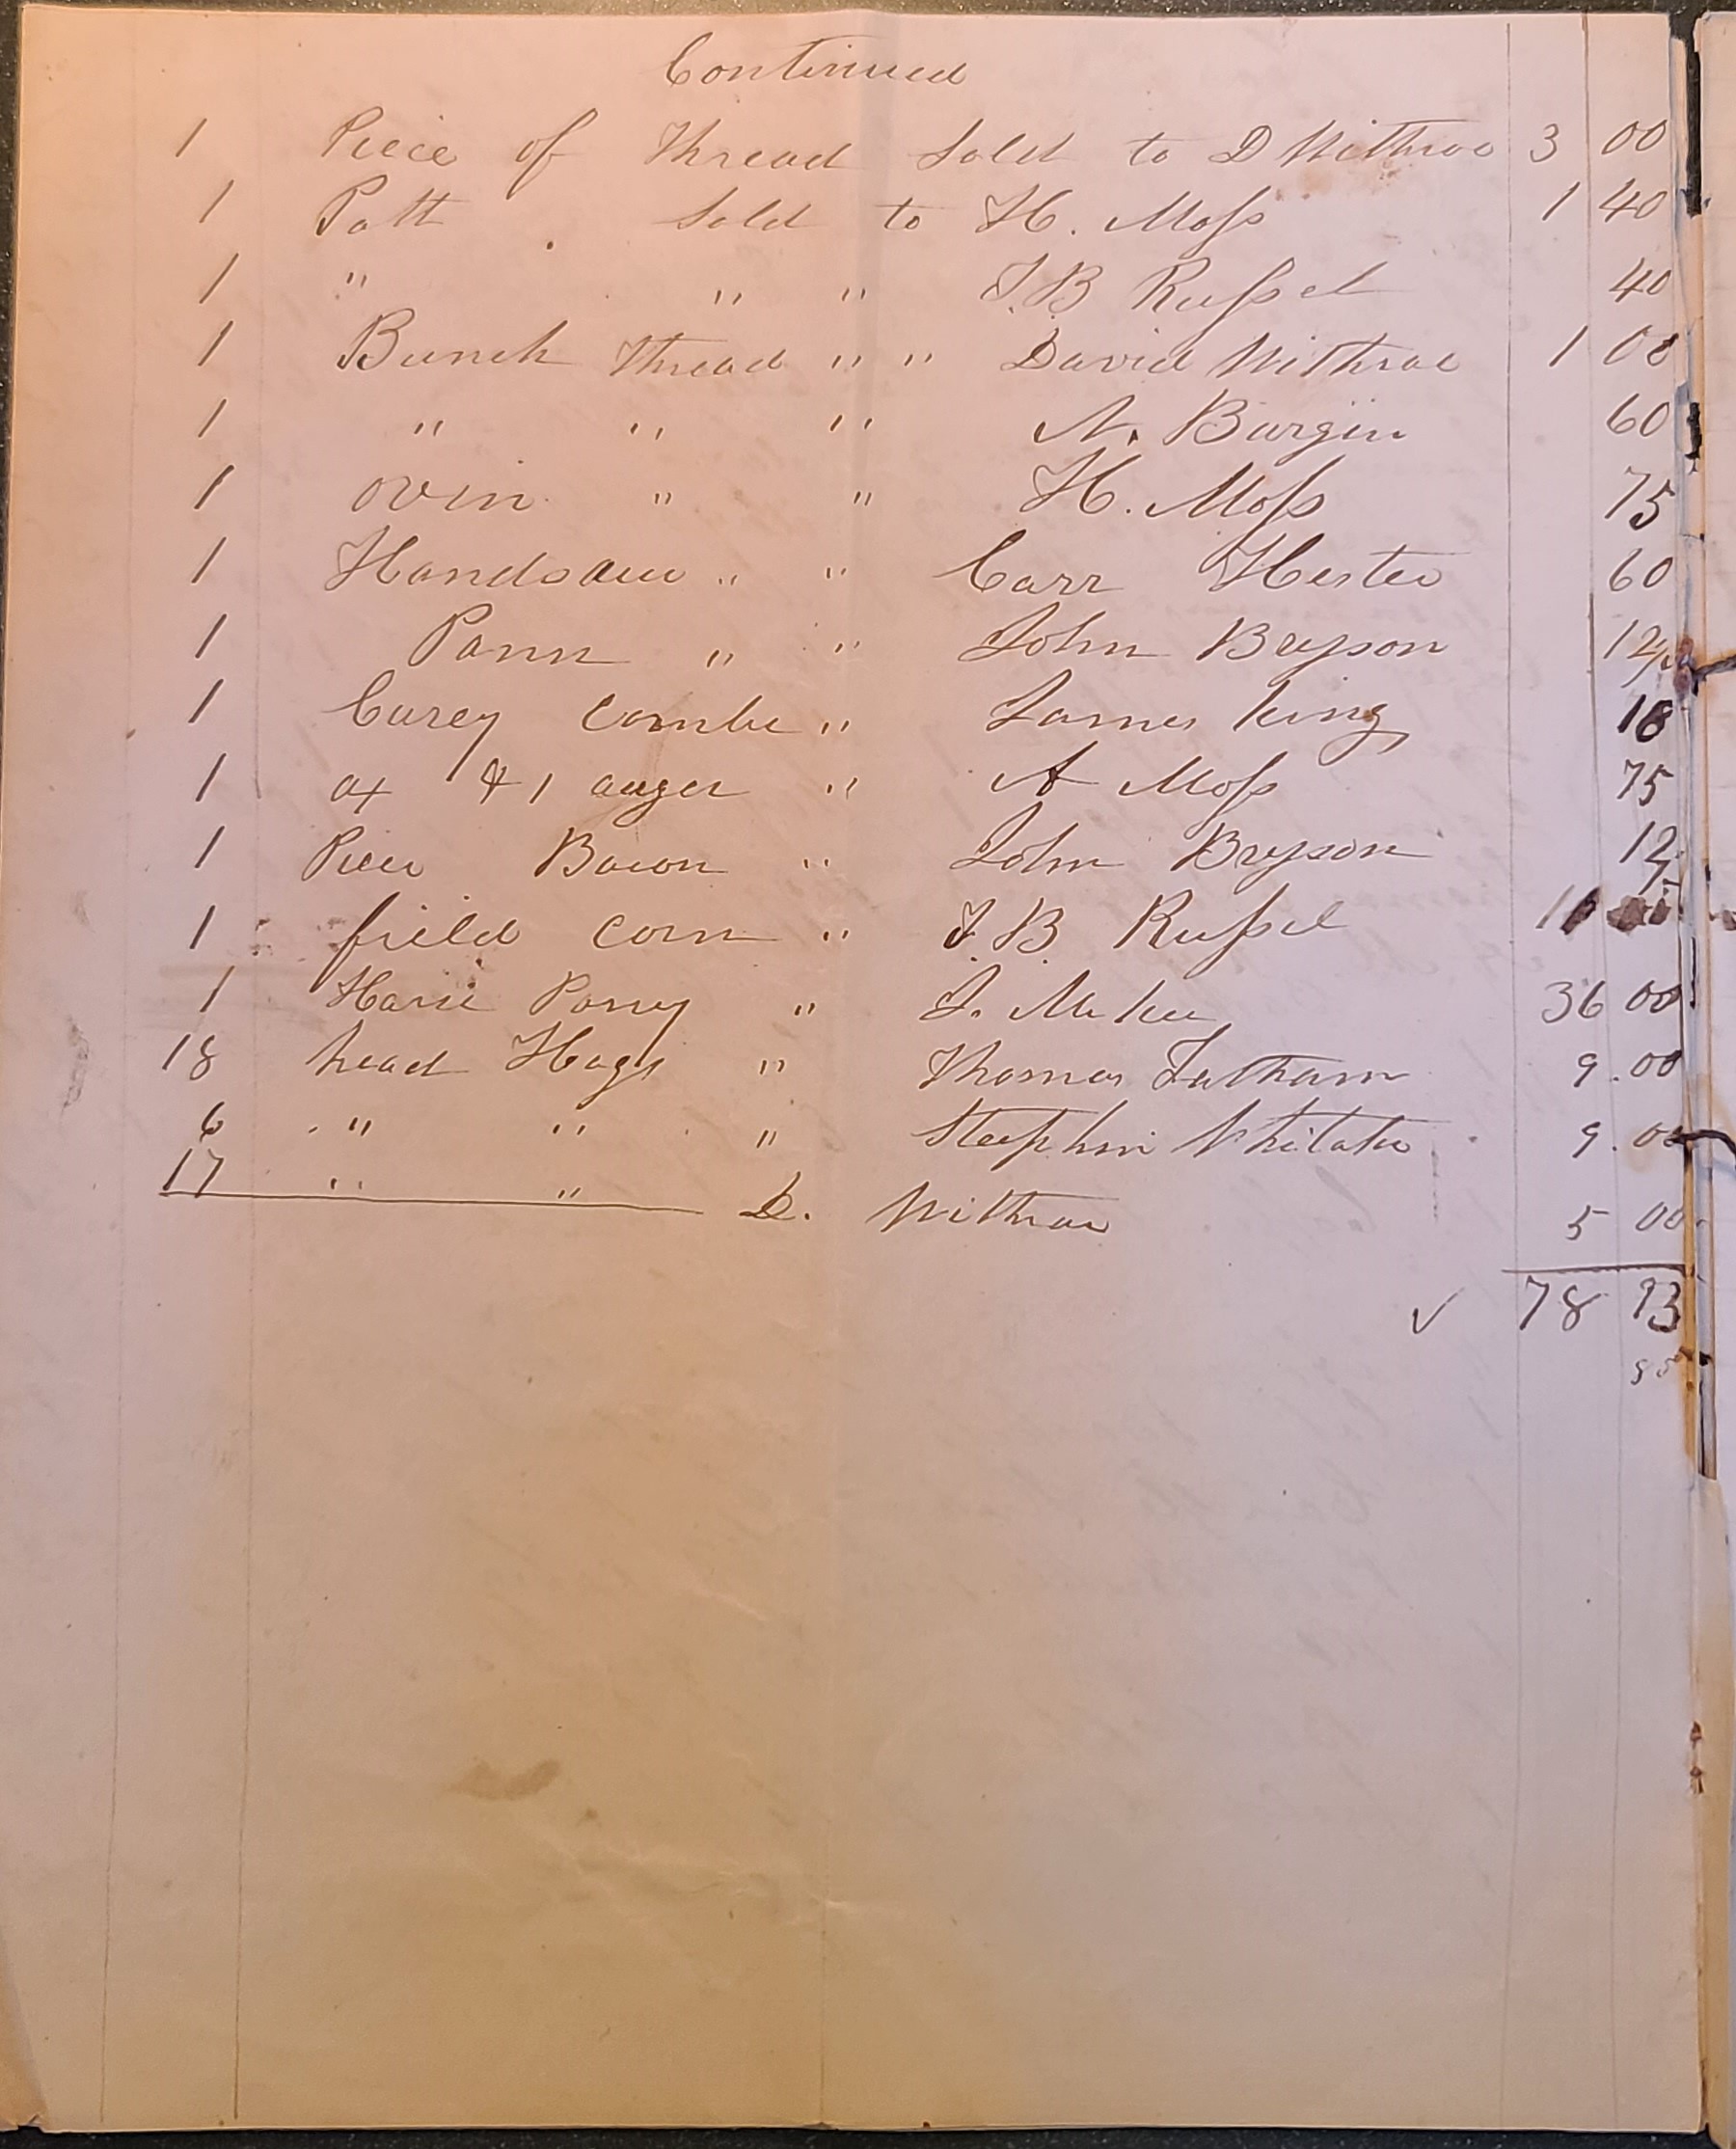 Continued
1 Peece of Thread Sold to D Withroe 3 00
1 Pott . Sold to H. Moss 1 40
1 " " " J. B Russel 40
1 Bunch Thread " " David Withroe 1 00
1 " " " A. Burgin 60
1 ovin " " H. Moss 75
1 Handsaw " " Carr Hester 60
1 Pann " " John Bryson 12½
1 Curey Combe " James King 18
1 ax & 1 auger " A Moss 75
1 Peece Bacon " John Bryson 12
1 field Corn " J. B. Russel
1 Horse Poney " J. McKee 36 00
18 head Hogs " Thomas Latham 9.00
6 " " " Stephen Whitaker 9.00
17 " " D. Withrow 5 00
✓ 78 93